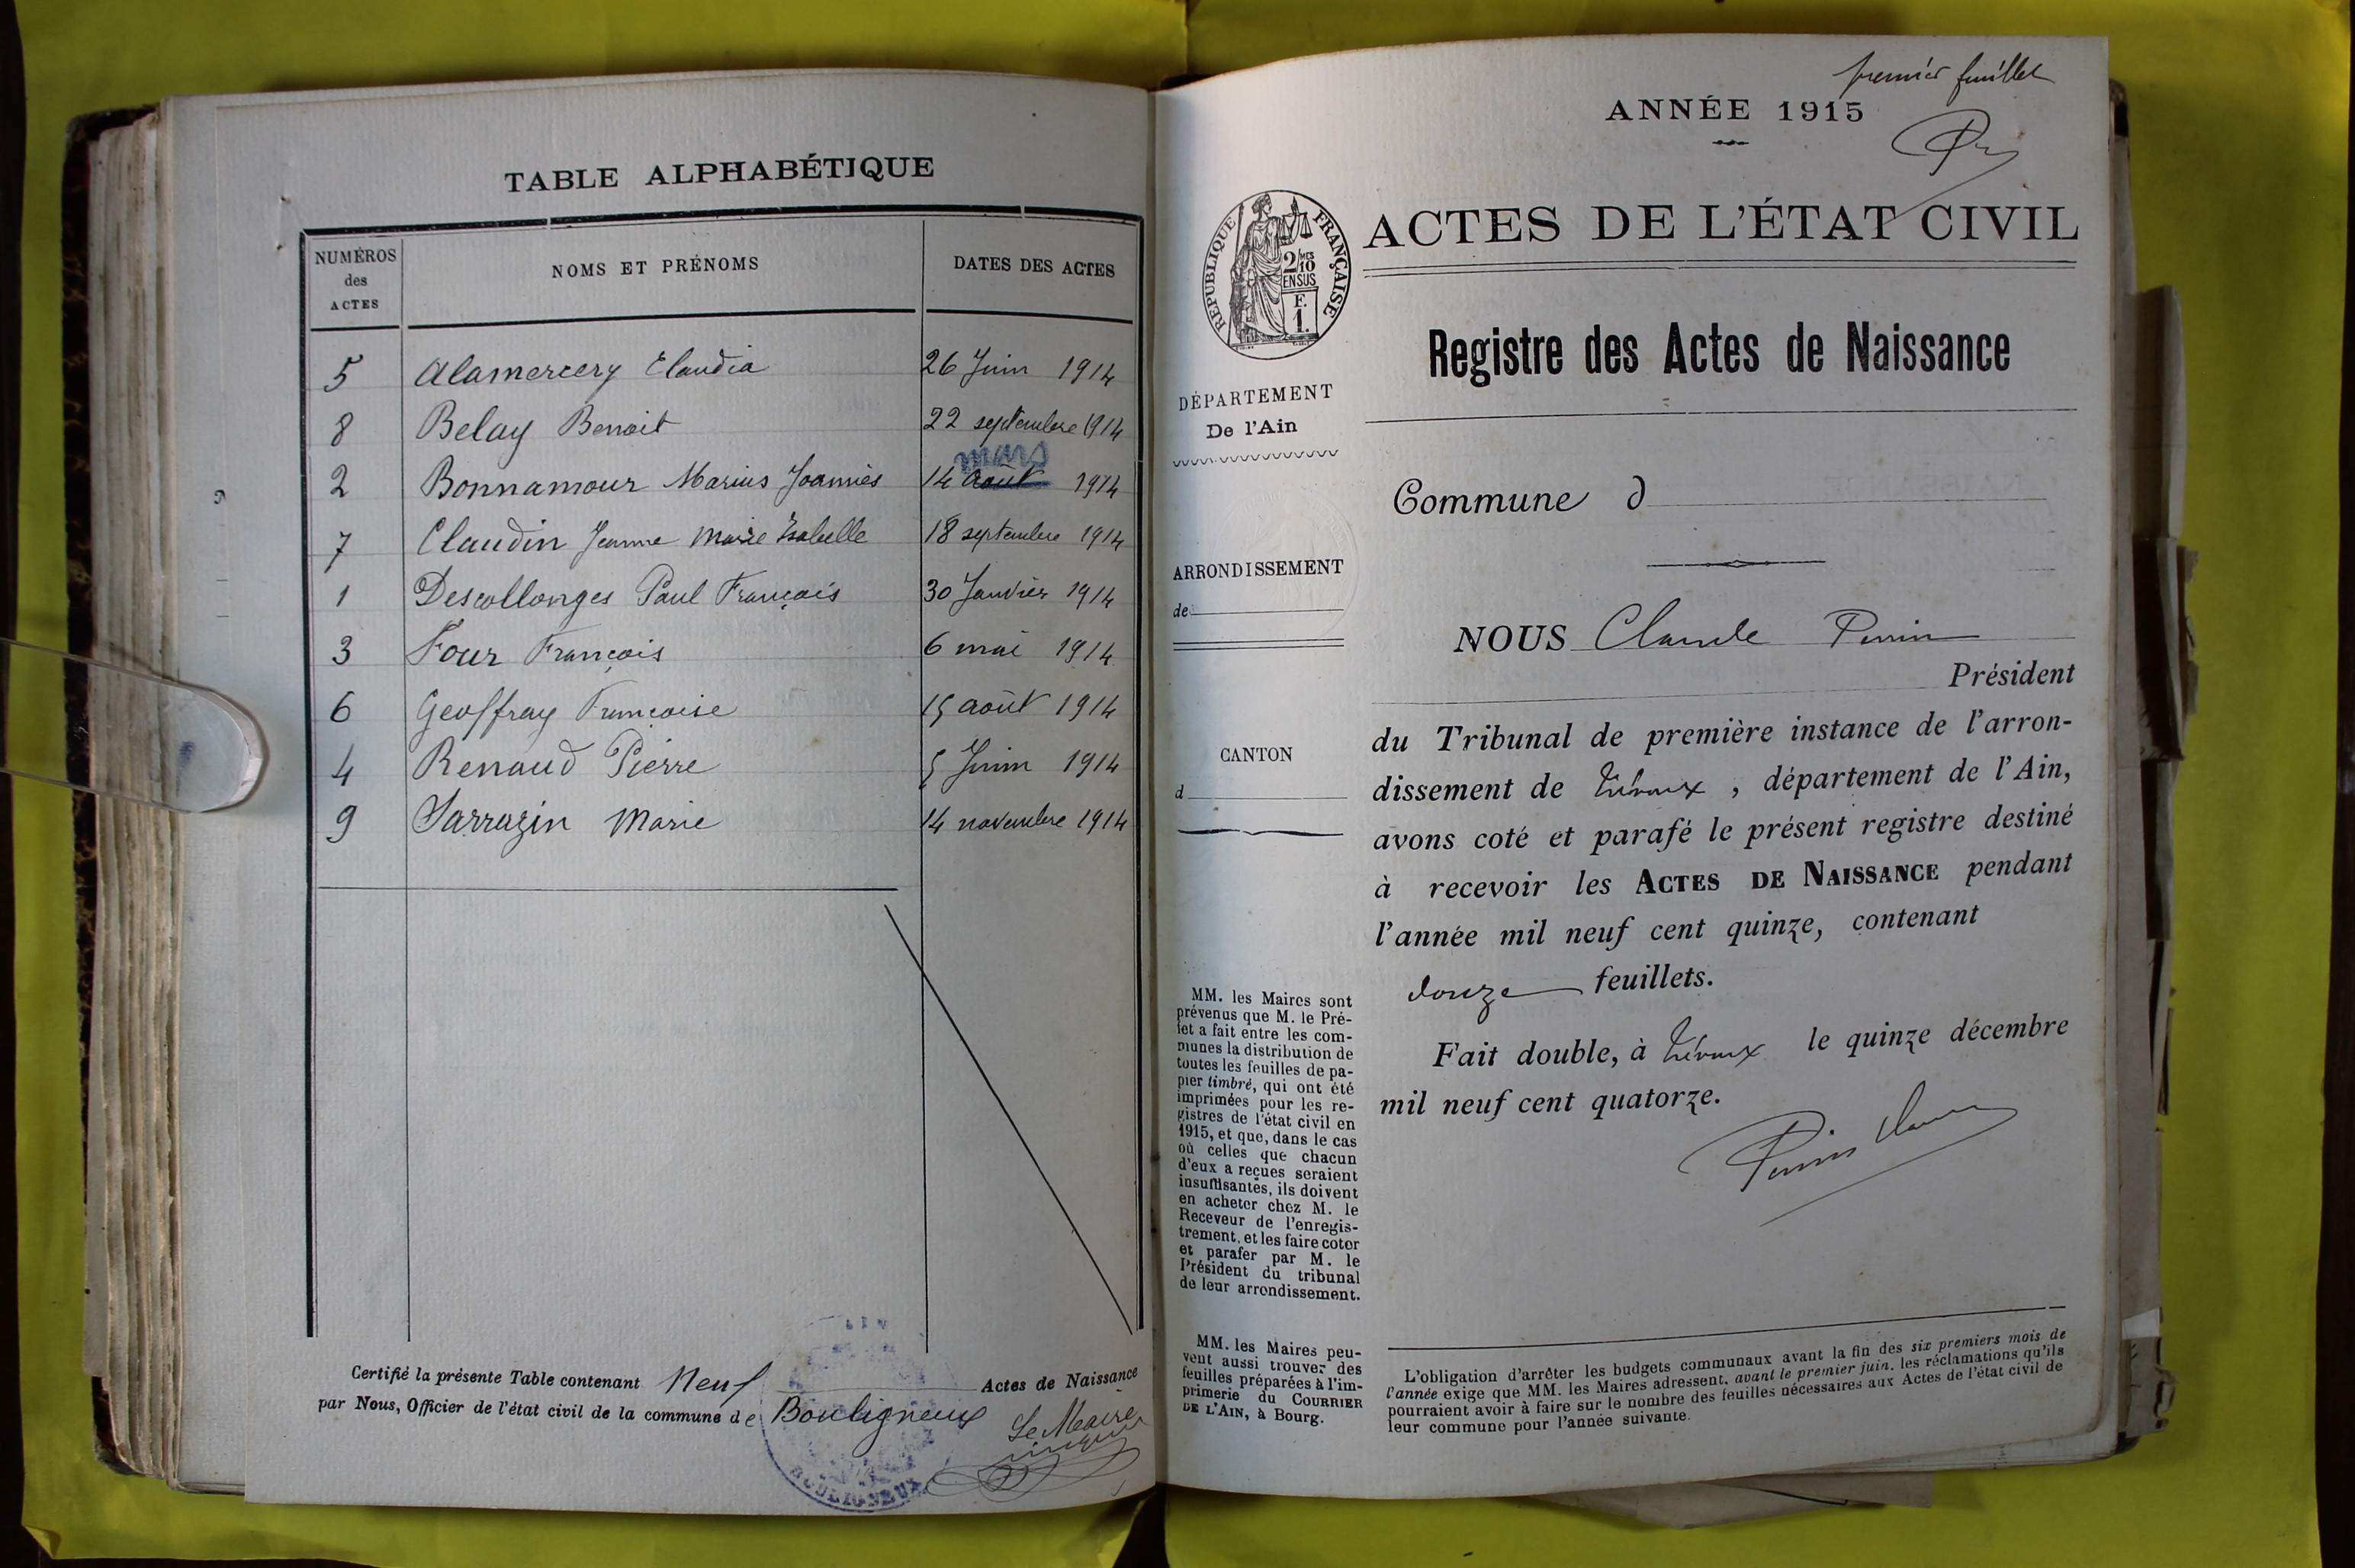 TABLE ALPHABÉTIQUE
NUMÉROS des ACTES NOMS ET PRÉNOMS DATES DES ACTES
5 Alamercery Claudia 26 Juin 1914
8 Belay Benoit 22 septembre 1914
mars
2 Bonnamour Marius Joannès 14 août 1914
7 Claudin Jeanne Marie Isabelle 18 septembre 1914
1 Descollonges Paul François 30 Janvier 1914
3 Four François 6 mai 1914
6 Geoffray Françoise 15 août 1914
4 Renaud Pierre 5 Juin 1914
9 Sarrazin Marie 14 novembre 1914
Certifié la présente Table contenant Neuf Actes de Naissance
par Nous, Officier de l'état civil de la commune de Bouligneux
Le Maire
BOULIGNEUX
premier feuillet
ANNÉE 1915
ACTES DE L'ÉTAT CIVIL
RÉPUBLIQUE FRANÇAISE
2/10 MES
EN SUS
F.
1.
Registre des Actes de Naissance
DÉPARTEMENT
De l'Ain
Commune d
ARRONDISSEMENT
de
CANTON
d
NOUS Claude Perrin
Président
du Tribunal de première instance de l'arron-
dissement de Trévoux, département de l'Ain,
avons coté et parafé le présent registre destiné
à recevoir les ACTES DE NAISSANCE pendant
l'année mil neuf cent quinze, contenant
douze feuillets.
Fait double, à Trévoux le quinze décembre
mil neuf cent quatorze.
Perrin Claude
MM. les Maires sont
prévenus que M. le Pré-
fet a fait entre les com-
munes la distribution de
toutes les feuilles de pa-
pier timbré, qui ont été
imprimées pour les re-
gistres de l'état civil en
1915, et que, dans le cas
où celles que chacun
d'eux a reçues seraient
insuffisantes, ils doivent
en acheter chez M. le
Receveur de l'enregis-
trement, et les faire coter
et parafer par M. le
Président du tribunal
de leur arrondissement.
MM. les Maires peu-
vent aussi trouver des
feuilles préparées à l'im-
primerie du COURRIER
DE L'AIN, à Bourg.
L'obligation d'arrêter les budgets communaux avant la fin des six premiers mois de
l'année exige que MM. les Maires adressent, avant le premier juin, les réclamations qu'ils
pourraient avoir à faire sur le nombre des feuilles nécessaires aux Actes de l'état civil de
leur commune pour l'année suivante.